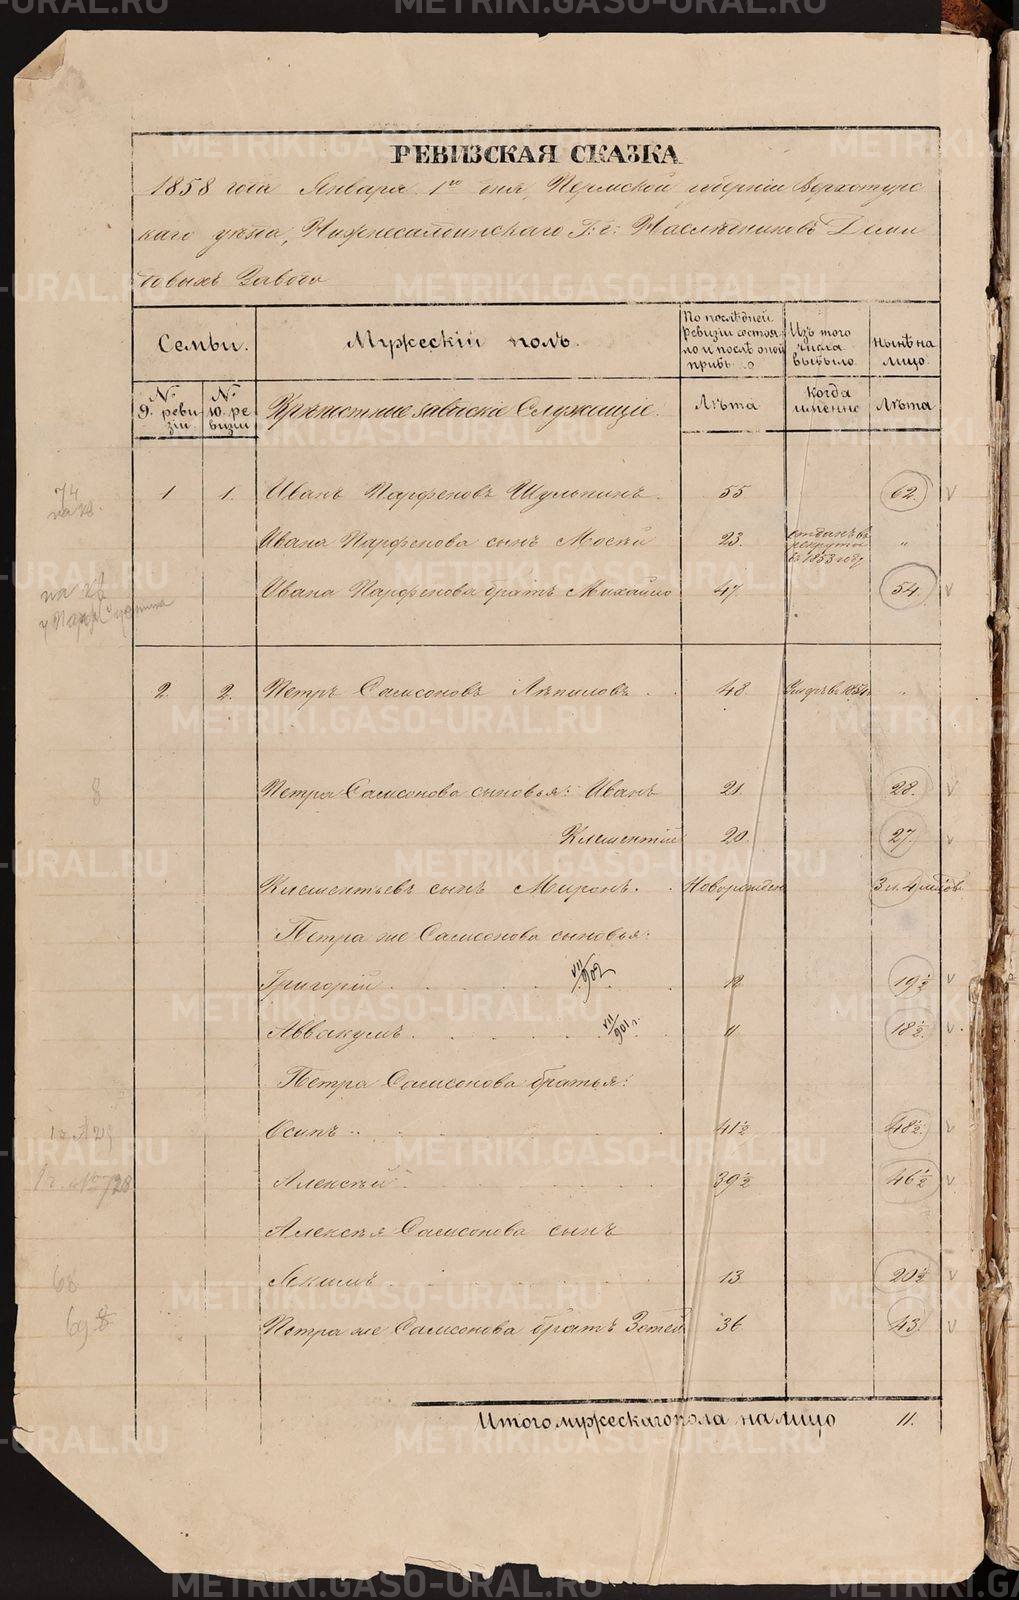 РЕВИЗСКАЯ СКАЗКА
1858 года Января 1го дня, Пермской губернiи Верхотурс
каго уѣзда, Нижнесалдинскаго Г: г: Наслѣдниковъ Деми
довыхъ Завода
Семьи. Мужескiй полъ. По послѣдней Ревизiи состояло и послѣ оной прибыло Изъ того числа выбыло. Нынѣ на лицо.
№ 9. ревизiи № 10. ревизiи Крѣпостные заводскiе Служащiе. Лѣта Когда именно Лѣта
1 1. Иванъ Парфеновъ Шульпинъ. 55 62. v
74
на
Ивана Парфенова сынъ Мосей 23. отданъ въ рекруты въ 1853 году "
Ивана Парфенова братъ Михайло 47 54. v
на
2. 2. Петръ Самсоновъ Ляпиловъ. 48. Умеръ въ 1854 г. "
8 Петра Самсонова сыновья: Иванъ 21. 28. v
Климентiй 20. 27. v
Климентьевъ сынъ Миронъ. Новорожден 3 г. 4 мѣсов.
Петра же Самсонова сыновья:
Григорiй VII/902 12 19½ v
Аввакумъ VII/901 г. 11 18½. v
Петра Самсонова братья:
Осипъ 41½ 48½. v
Алексѣй 39½ 46½ v
Алексѣя Самсонова сынъ
68 Якимъ 13. 20½ v
69 Петра же Самсонова братъ Зотей 36 43. v
Итого мужескаго пола на лицо 11.
METRIKI.GASO-URAL.RU